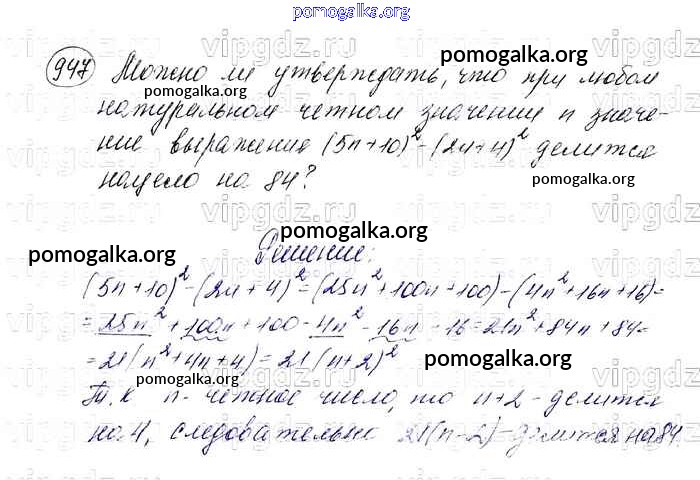 pomogalka.org
947 Можно ли утверждать, что при любом
натуральном четном значении n значе-
ние выражения (5n+10)² - (2n+4)² делится
нацело на 84?
Решение:
(5n+10)² - (2n+4)² = (25n² + 100n + 100) - (4n² + 16n + 16) =
= 25n² + 100n + 100 - 4n² - 16n - 16 = 21n² + 84n + 84 =
= 21(n² + 4n + 4) = 21(n+2)²
Т.к n - четное число, то n+2 - делится
на 4, следовательно 21(n-2) - делится на 84.
pomogalka.org
pomogalka.org
pomogalka.org
pomogalka.org
pomogalka.org
pomogalka.org
pomogalka.org
pomogalka.org
vipgdz.ru